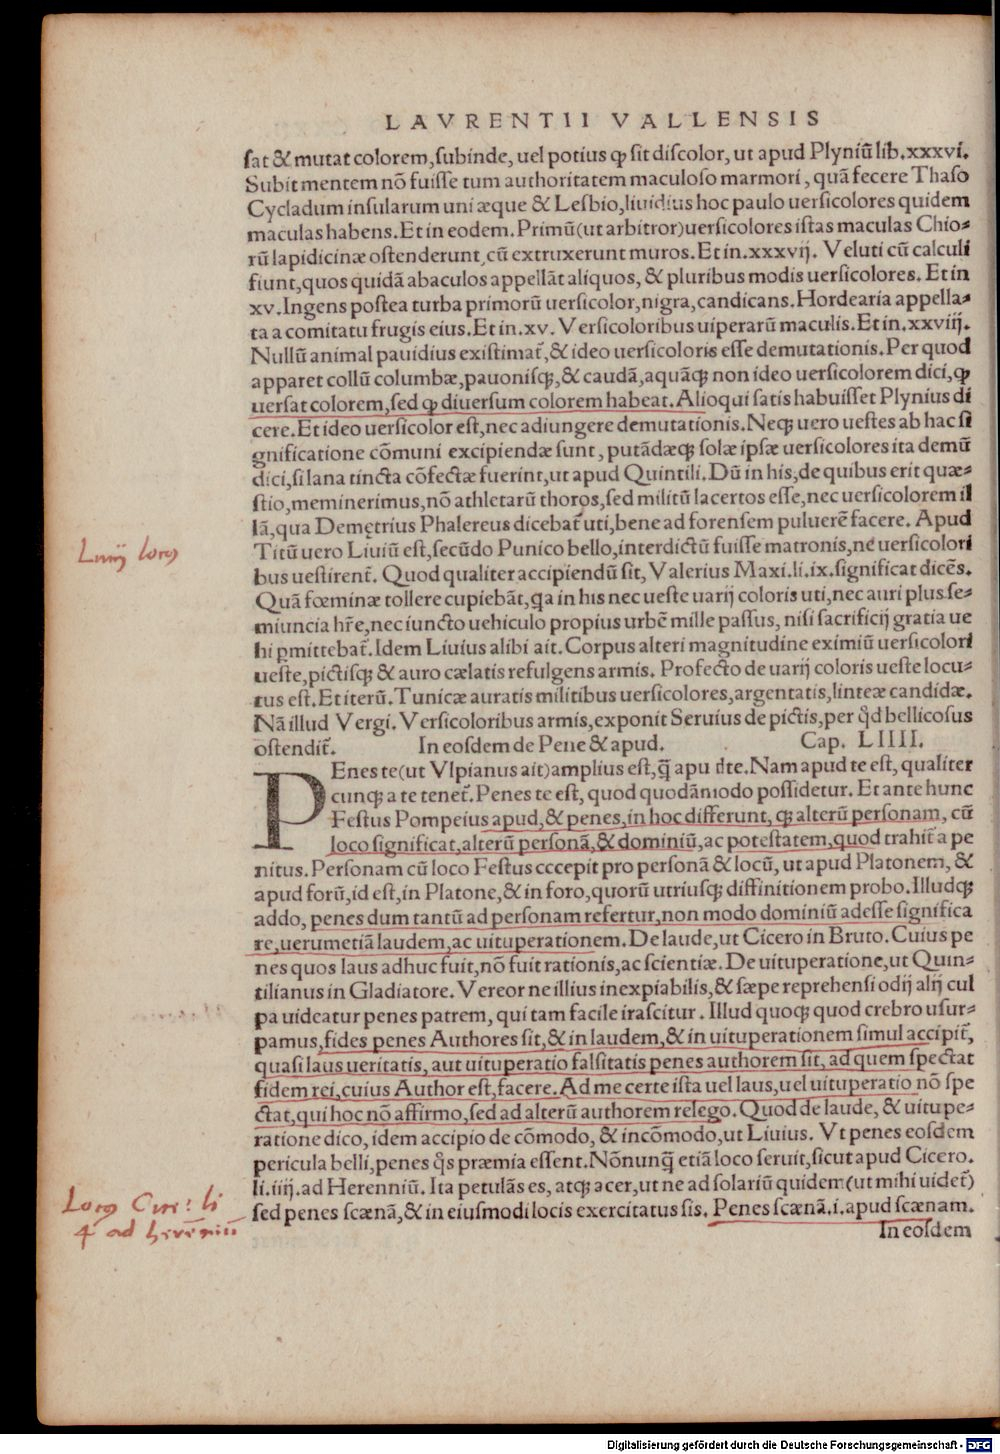 LAVRENTII VALLENSIS
sat & mutat colorem, subinde, uel potius ꝙ sit discolor, ut apud Plyniũ lib. xxxvi.
Subit mentem nõ fuisse tum authoritatem maculoso marmori, quã fecere Thaso
Cycladum insularum uni æque & Lesbio, liuidius hoc paulo uersicolores quidem
maculas habens. Et in eodem. Primũ (ut arbitror) uersicolores istas maculas Chio-
rũ lapidicinæ ostenderunt, cũ extruxerunt muros. Et in. xxxvij. Veluti cũ calculi
fiunt, quos quidã abaculos appellãt aliquos, & pluribus modis uersicolores. Et in
xv. Ingens postea turba primorũ uersicolor, nigra, candicans. Hordearia appella-
ta a comitatu frugis eius. Et in. xv. Versicoloribus uiperarũ maculis. Et in. xxviij.
Nullũ animal pauidius existimat̃, & ideo uersicoloris esse demutationis. Per quod
apparet collũ columbæ, pauonisq̃, & caudã, aquãq̃ non ideo uersicolorem dici, ꝙ
uersat colorem, sed ꝙ diuersum colorem habeat. Alioqui satis habuisset Plynius di
cere. Et ideo uersicolor est, nec adiungere demutationis. Neq̃ uero uestes ab hac si
gnificatione cõmuni excipiendæ sunt, putãdæq̃ solæ ipsæ uersicolores ita demũ
dici, si lana tincta cõfectæ fuerint, ut apud Quintili. Dũ in his, de quibus erit quæ-
stio, meminerimus, nõ athletarũ thoros, sed militũ lacertos esse, nec uersicolorem il
lã, qua Demętrius Phalereus dicebat̃ uti, bene ad forensem puluerẽ facere. Apud
Liuij locus
Titũ uero Liuiũ est, secũdo Punico bello, interdictũ fuisse matronis, ne uersicolori
bus uestirent̃. Quod qualiter accipiendũ sit, Valerius Maxi. li. ix. significat dicẽs.
Quã fœminæ tollere cupiebãt, ꝗa in his nec ueste uarij coloris uti, nec auri plus se-
miuncia hr̃e, nec iuncto uehiculo propius urbẽ mille passus, nisi sacrificij gratia ue
hi ꝑmittebat̃. Idem Liuius alibi ait. Corpus alteri magnitudine eximiũ uersicolori
ueste, pictisq̃ & auro cælatis refulgens armis. Profecto de uarij coloris ueste locu-
tus est. Et iterũ. Tunicæ auratis militibus uersicolores, argentatis, linteæ candidæ.
Nã illud Vergi. Versicoloribus armis, exponit Seruius de pictis, per qd̃ bellicosus
ostendit̃. In eosdem de Pene & apud. Cap. LIIII.
PEnes te (ut Vlpianus ait) amplius est, q̃ apud te. Nam apud te est, qualiter
cunq̃ a te tenet̃. Penes te est, quod quodãmodo possidetur. Et ante hunc
Festus Pompeius apud, & penes, in hoc differunt, q̃ alterũ personam, cũ
loco significat, alterũ personã, & dominiũ, ac potestatem, quod trahit̃ a pe
nitus. Personam cũ loco Festus cccepit pro personã & locũ, ut apud Platonem, &
apud forũ, id est, in Platone, & in foro, quorũ utriusq̃ diffinitionem probo. Illudq̃
addo, penes dum tantũ ad personam refertur, non modo dominiũ adesse significa
re, uerumetiã laudem, ac uituperationem. De laude, ut Cicero in Bruto. Cuius pe
nes quos laus adhuc fuit, nõ fuit rationis, ac scientiæ. De uituperatione, ut Quin-
tilianus in Gladiatore. Vereor ne illius inexpiabilis, & sæpe reprehensi odij alij cul
pa uideatur penes patrem, qui tam facile irascitur. Illud quoq̃ quod crebro usur-
pamus, fides penes Authores sit, & in laudem, & in uituperationem simul accipit̃,
quasi laus ueritatis, aut uituperatio falsitatis penes authorem sit, ad quem spectat
fidem rei, cuius Author est, facere. Ad me certe ista uel laus, uel uituperatio nõ spe
ctat, qui hoc nõ affirmo, sed ad alterũ authorem relego. Quod de laude, & uitupe-
ratione dico, idem accipio de cõmodo, & incõmodo, ut Liuius. Vt penes eosdem
pericula belli, penes q̃s præmia essent. Nõnunq̃ etiã loco seruit, sicut apud Cicero.
Locus Cice: li
4 ad herẽniũ
li. iiij. ad Herenniũ. Ita petulãs es, atq̃ acer, ut ne ad solariũ quidem (ut mihi uidet̃)
sed penes scænã, & in eiusmodi locis exercitatus sis. Penes scænã. i. apud scænam.
In eosdem
Digitalisierung gefördert durch die Deutsche Forschungsgemeinschaft - DFG